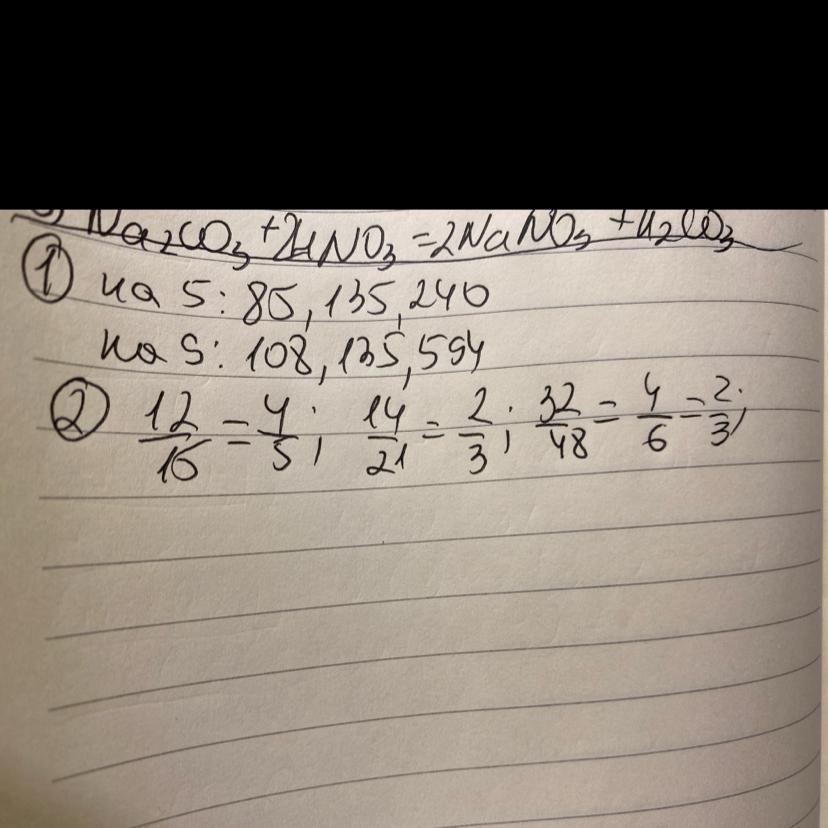 Na₂CO₃ + 2HNO₃ = 2NaNO₃ + H₂CO₃
① на 5: 85, 135, 240
на 9: 108, 135, 594
② 12/15 = 4/5; 14/21 = 2/3; 32/48 = 4/6 = 2/3;